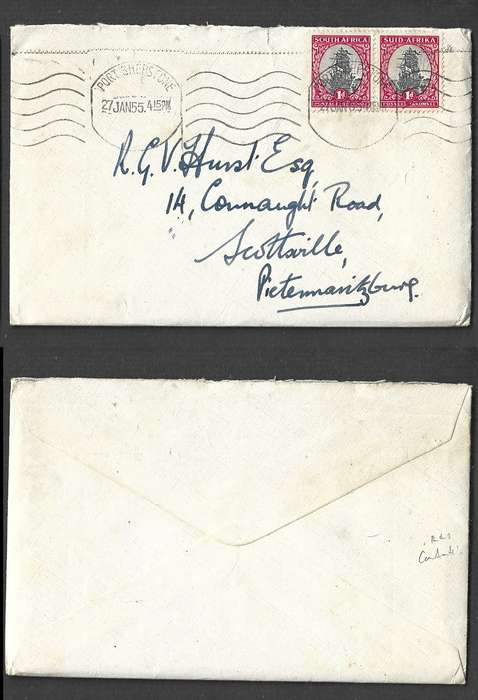 PORT SHEPSTONE
27 JAN 55. 4 15 PM
SOUTH AFRICA SUID-AFRIKA
1D 1D
R. G. V. Hurst Esq
14, Connaught Road,
Scottsville,
Pietermaritzburg.